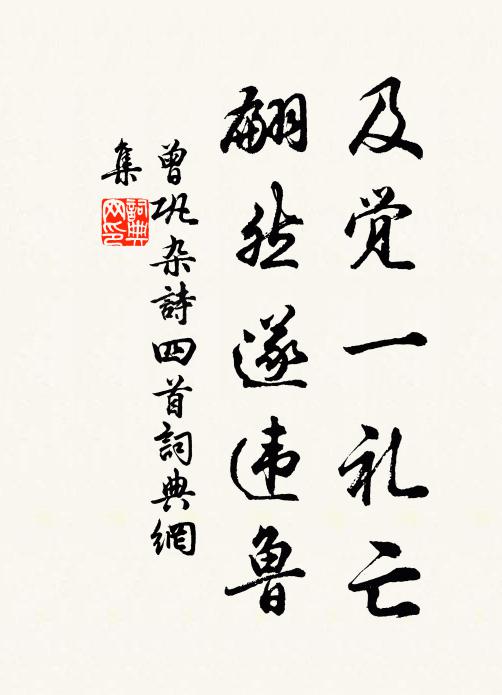 及觉一礼亡
翩然遂违鲁
曾巩杂詩四首詞典網
集
詞典
网印